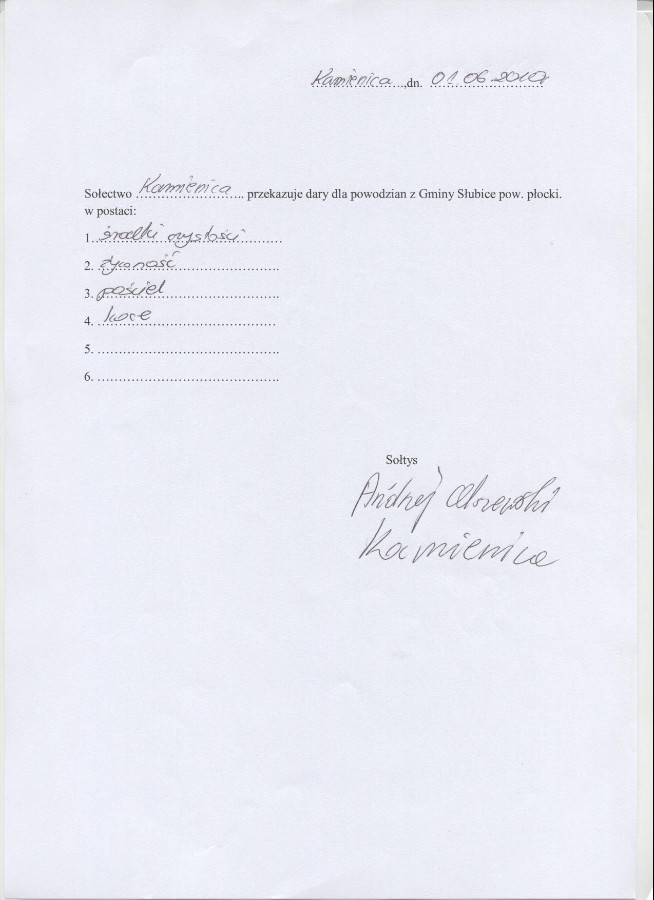 Kamienica...,dn. 01.06.2010r
Sołectwo Kamienica... przekazuje dary dla powodzian z Gminy Słubice pow. płocki.
w postaci:
1. środki czystości
2. żywność
3. pościel
4. koce
5. ................................................
6. ................................................
Sołtys
Andrzej Olszewski
Kamienica